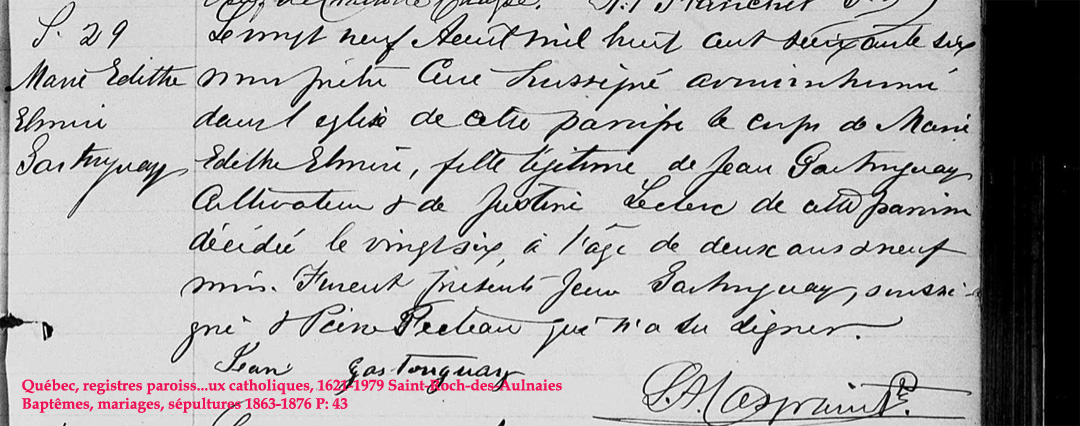 S. 29
Marie Edithe
Elmire
Gastonguay
Le vingt neuf Aout mil huit cent soixante six
nous prêtre Curé Soussigné avons inhumé
dans l'eglise de cette paroisse le corps de Marie
Edithe Elmire, fille légitime de Jean Gastonguay
Cultivateur & de Justine Leclerc de cette paroisse
décédée le vingt six, à l'âge de deux ans & neuf
mois. Furent présents Jean Gastonguay, soussi-
gné & Pierre Pecteau qui n'a su signer.
Jean Gastonguay
Québec, registres paroiss...ux catholiques, 1621-1979 Saint-Roch-des-Aulnaies
Baptêmes, mariages, sépultures 1863-1876 P: 43